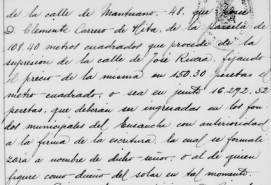 de la calle de Mantuano.-48 que
D. Clemente Carrero de Hita, de la parcela de
108.40 metros cuadrados que procede de la
supresion de la calle de José Rivera, fijando
el precio de la misma en 150.30 pesetas el
metro cuadrado, o sea en junto 16.292.52
pesetas, que deberán ser ingresadas en los fon
dos municipales del Ensanche con anterioridad
a la firma de la escritura, la cual se formali
zará a nombre de dicho señor, o al de quien
figure como dueño del solar en tal momento.